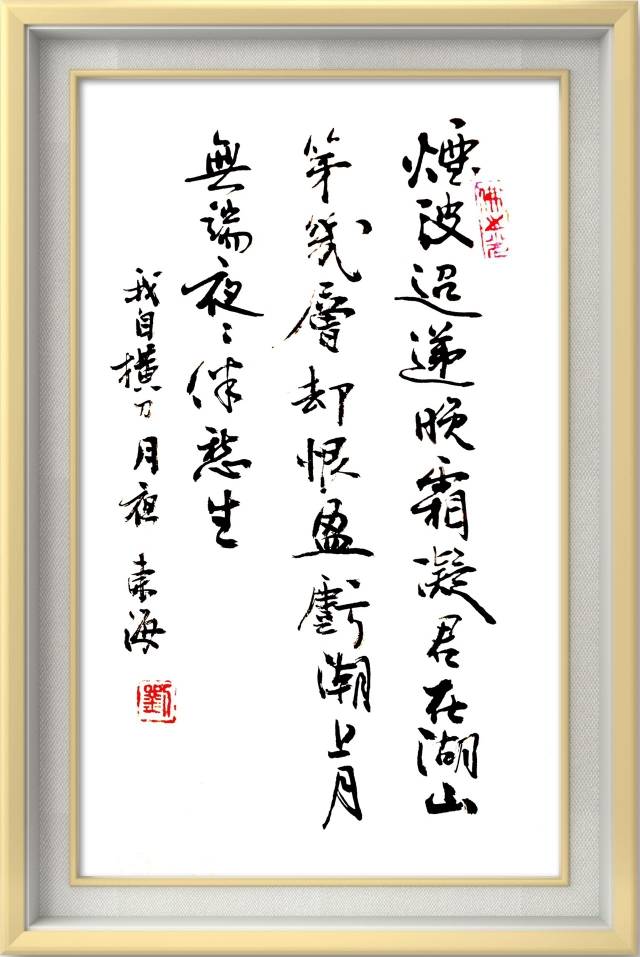 煙波迢递晚霜凝君在湖山
第幾層却恨盈虧潮上月
無端夜〻伴愁生
我自横刀月夜 海
劉